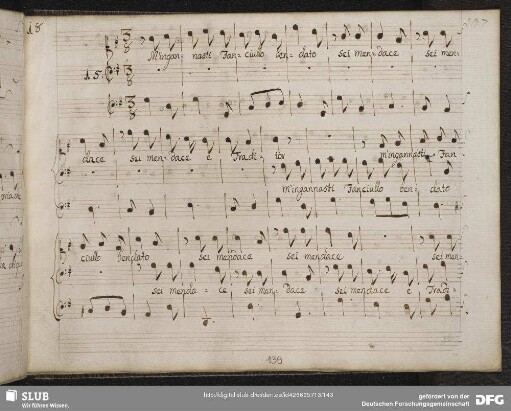 18
M'ingannasti Fanciullo bendato sei mendace sei men=
dace sei mendace e Tradi= tor m'ingannasti Fan=
m'ingannasti Fanciullo ben dato
ciullo bendato sei mendace sei mendace sei men=
sei menda= ce sei mendace sei mendace e Tradi=
139
SLUB
Wir führen Wissen.
gefördert von der
Deutschen Forschungsgemeinschaft
DFG